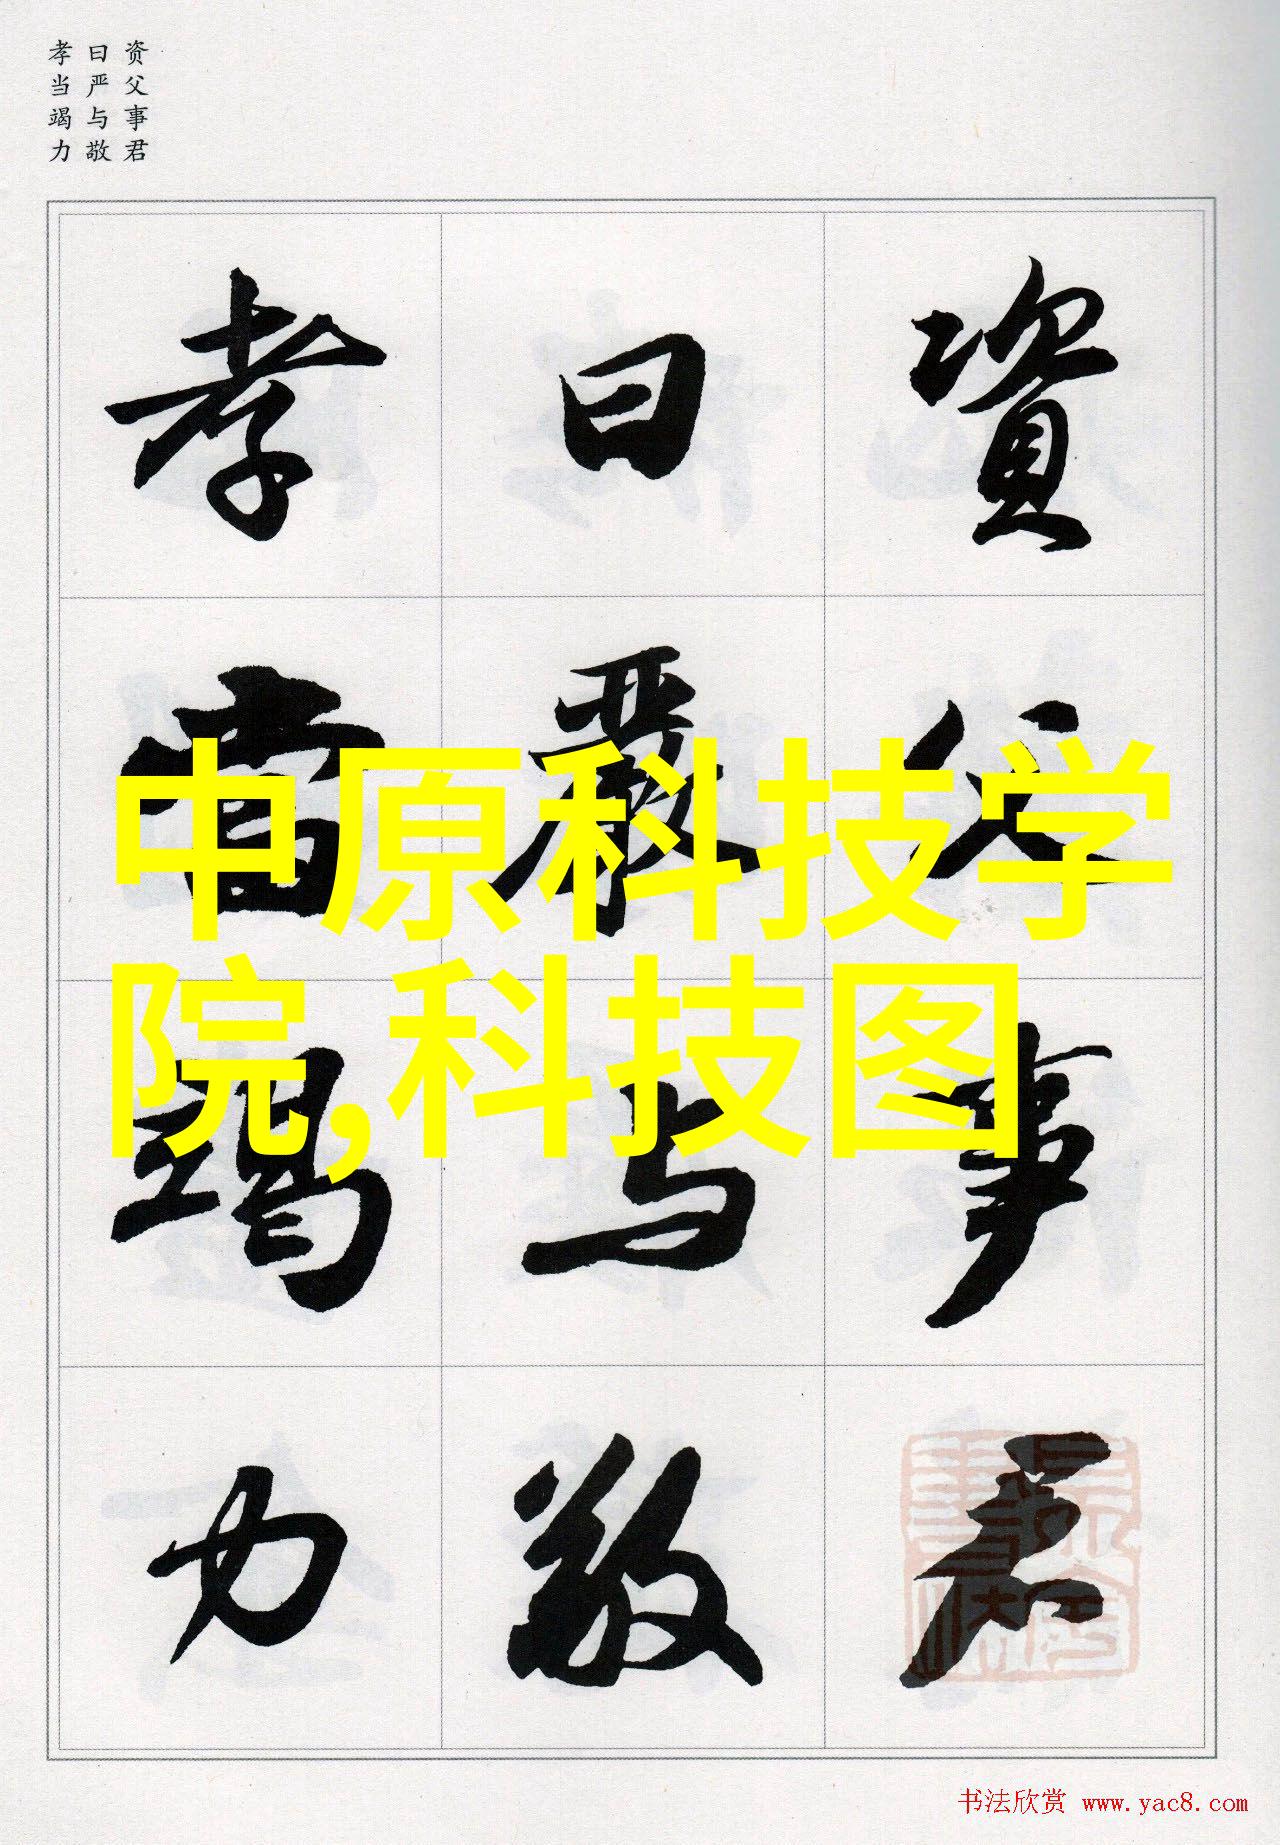 资父事君
曰严与敬
孝当竭力
資父事君
曰嚴与敬
孝當竭力
中原科技学
院,科技图
书法欣赏 www.yac8.com